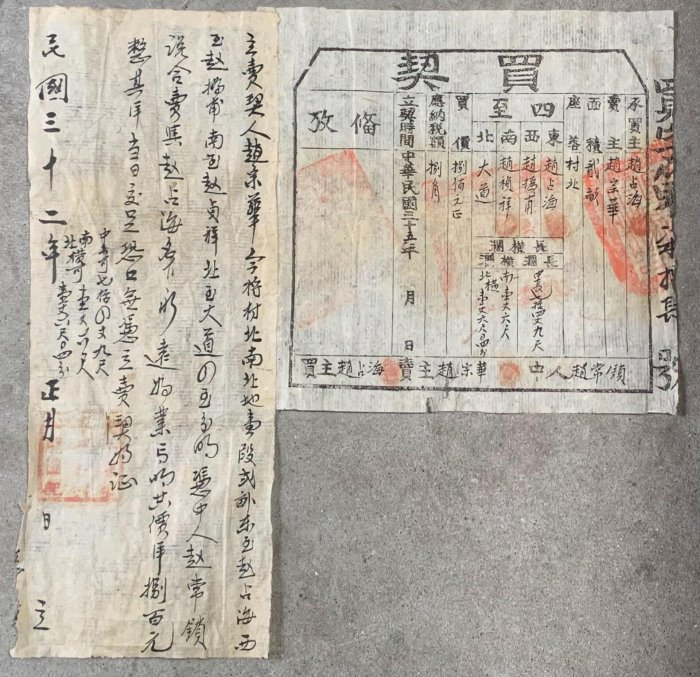 立賣契人趙宗華今將村北南北地壹段弍畝東至趙占海西
至趙 南至趙貞祥北至大道四至分明憑中人趙常鎖
説合賣與趙占海名下永遠為業言明共價洋捌百元
整其洋當日交足恐口無憑立賣契為証
中長可七拾四丈九尺
南橫可壹丈六尺
北橫可壹丈六尺四寸
民國三十二年正月 日 立
買契
承買主 趙占海
賣主 趙宗華
面積 弍畝
座落 村北
四至
東 趙占海
西 趙
南 趙楨祥
北 大道
長橫濶
長橫濶
中長七拾四丈九尺
南壹丈六尺
北橫壹丈六尺四寸
買價 捌佰元正
應納稅額 捌月
立契時間 中華民國三十五年 月 日
備攷
買主趙占海 賣主趙宗華 中人趙常鎖
號